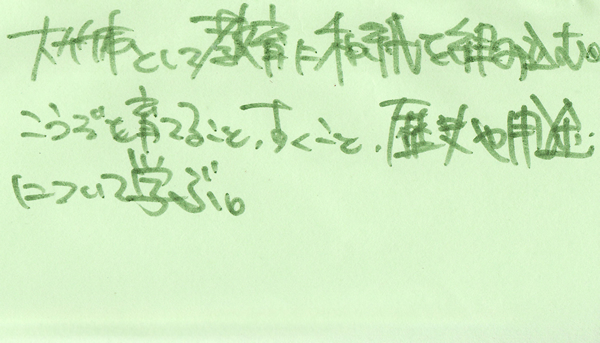 大州市として教育に和紙を組み込む。
こうぞを育てること、すくこと、歴史や用途
について学ぶ。